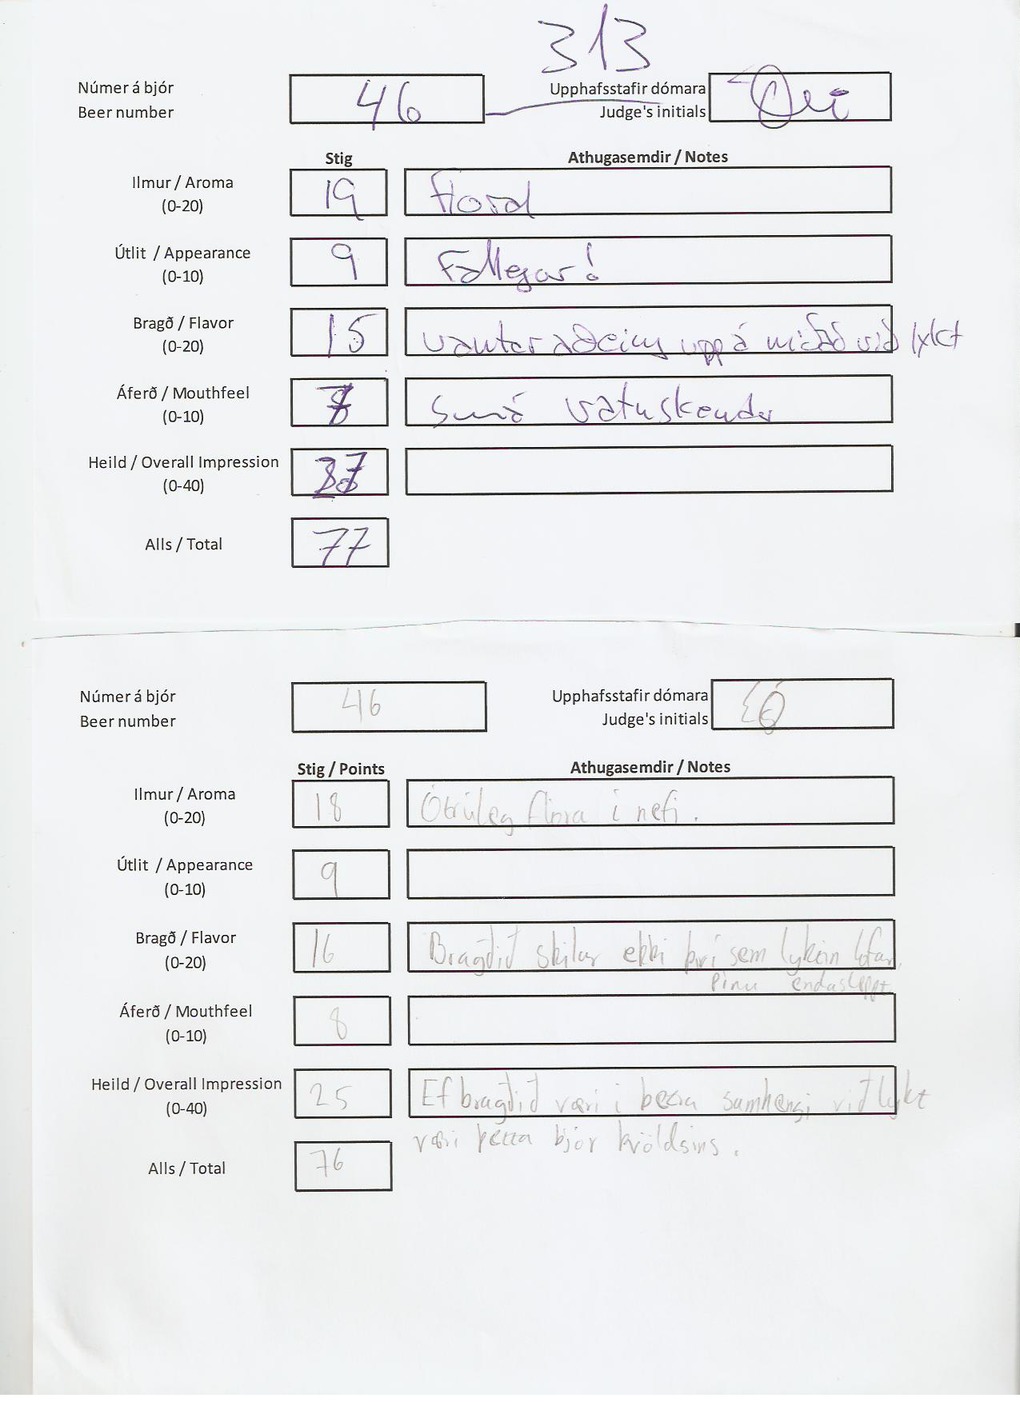 313
Númer á bjór
Beer number
46
Upphafsstafir dómara
Judge's initials
Stig
Athugasemdir / Notes
Ilmur / Aroma
(0-20)
19
floral
Útlit / Appearance
(0-10)
9
Fallegur!
Bragð / Flavor
(0-20)
15
vantar aðeins uppá miðað við lykt
Áferð / Mouthfeel
(0-10)
smá vatnskendur
Heild / Overall Impression
(0-40)
Alls / Total
77
Númer á bjór
Beer number
46
Upphafsstafir dómara
Judge's initials
Stig / Points
Athugasemdir / Notes
Ilmur / Aroma
(0-20)
18
Ótrúleg flóra í nefi.
Útlit / Appearance
(0-10)
9
Bragð / Flavor
(0-20)
16
Bragðið skilar ekki því sem lyktin lofar.
Pínu endasleppt
Áferð / Mouthfeel
(0-10)
8
Heild / Overall Impression
(0-40)
25
Ef bragðið væri í betra samhengi við lykt
væri þetta bjór kvöldsins.
Alls / Total
76